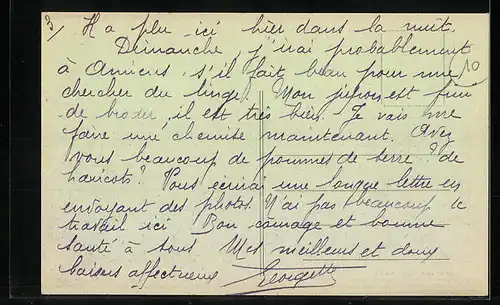 3/ Il a plu ici hier dans la nuit.
Dimanche, j'irai probablement
à Amiens, s'il fait beau pour me 10
chercher du linge. Mon jupon est fini
de broder, il est très bien. Je vais me
faire une chemise maintenant. Avez
vous beaucoup de pommes de terre? de
haricots? Vous écrirai une longue lettre en
envoyant des photos. N'ai pas beaucoup de
travail ici. Bon courage et bonne
santé à tous Mes meilleurs et doux
baisers affectueux Georgette